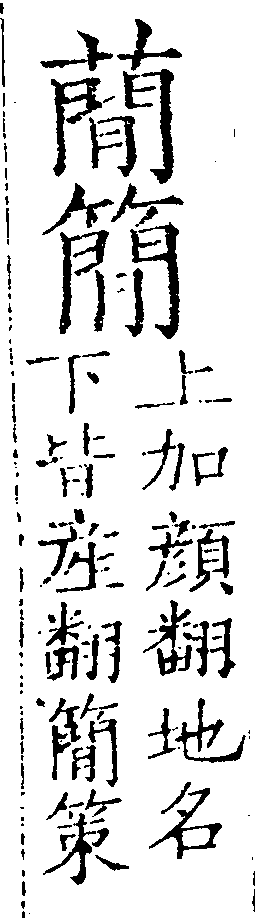 蕳簡
上加顔翻地名
下皆産翻簡策